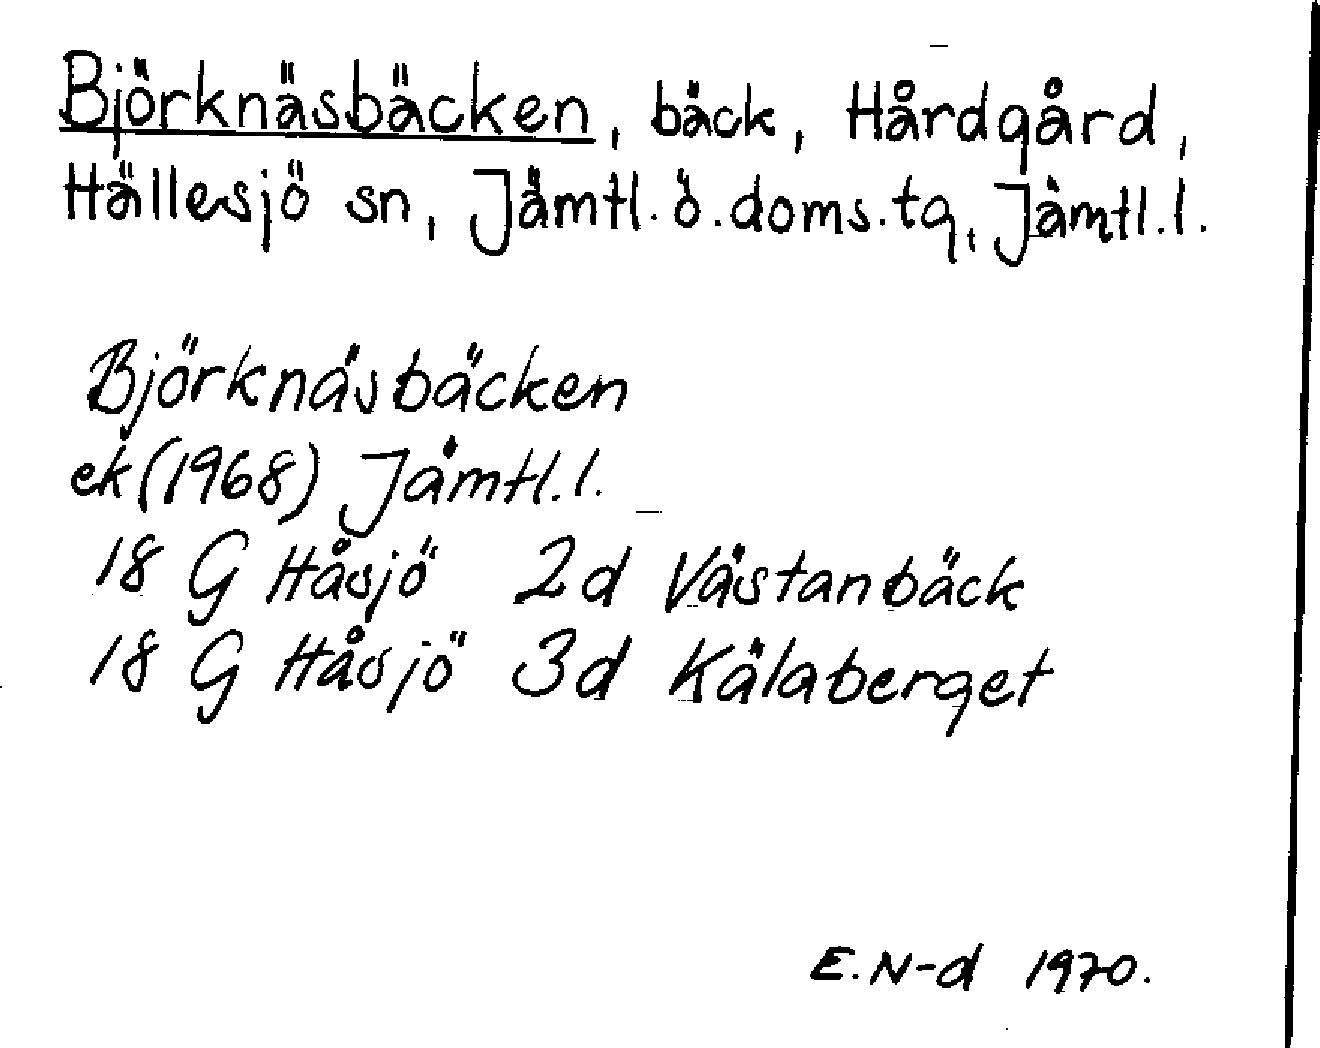 Björknäsbäcken, bäck, Hårdgård,
Hällesjö sn, Jämtl. ö. doms. tg, Jämtl. l.
Björknäsbäcken
ek (1968) Jämtl. l.
18 G Håsjö 2d Västanbäck
18 G Håsjö 3d Kälaberget
E. N-d 1970.